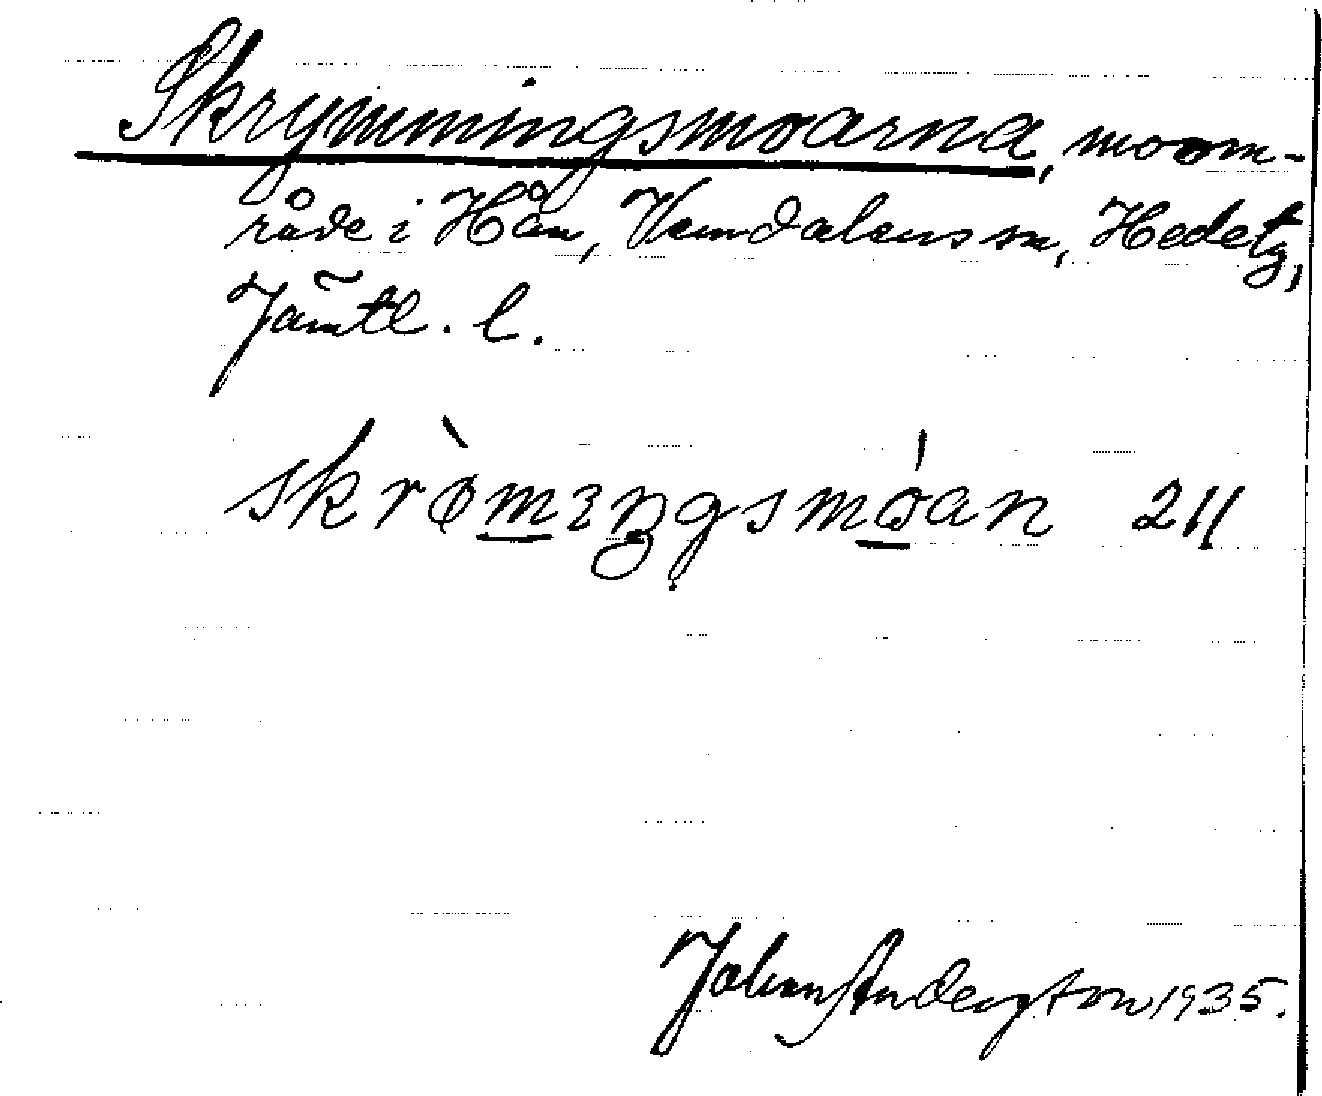 Skrymmingsmoarna, moom-
råde i Hån, Vemdalens sn, Hedetg,
Jämtl. l.
skrø̀mıŋgsmóan 211
Johan Anderson 1935.